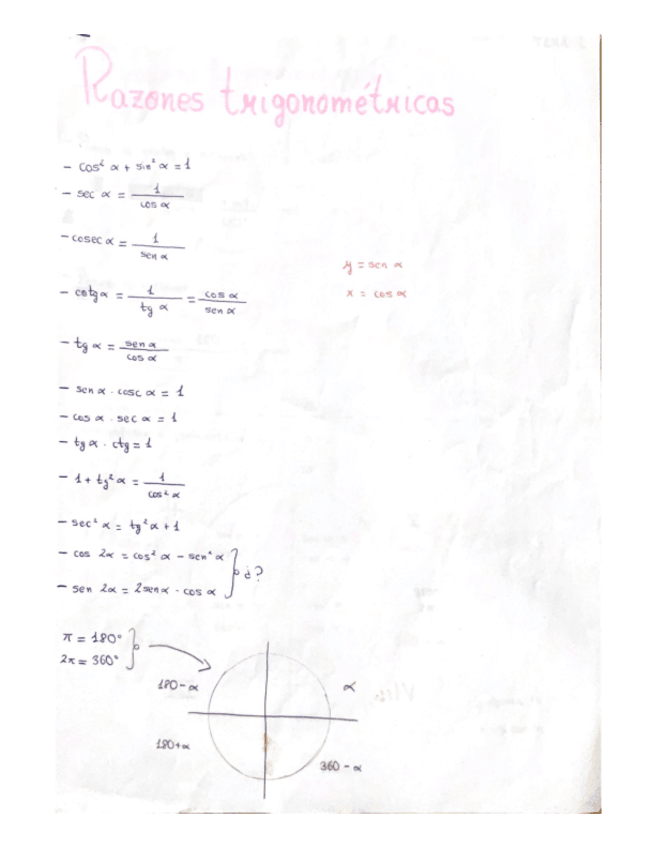 Razones trigonométricas
- cos² α + sin² α = 1
- sec α = 1 / cos α
- cosec α = 1 / sen α
y = sen α
x = cos α
- cotg α = 1 / tg α = cos α / sen α
- tg α = sen α / cos α
- sen α · cosc α = 1
- cos α · sec α = 1
- tg α · ctg = 1
- 1 + tg² α = 1 / cos² α
- sec² α = tg² α + 1
- cos 2α = cos² α - sen² α
¿?
- sen 2α = 2 sen α · cos α
π = 180°
2π = 360°
180 - α
α
180 + α
360 - α